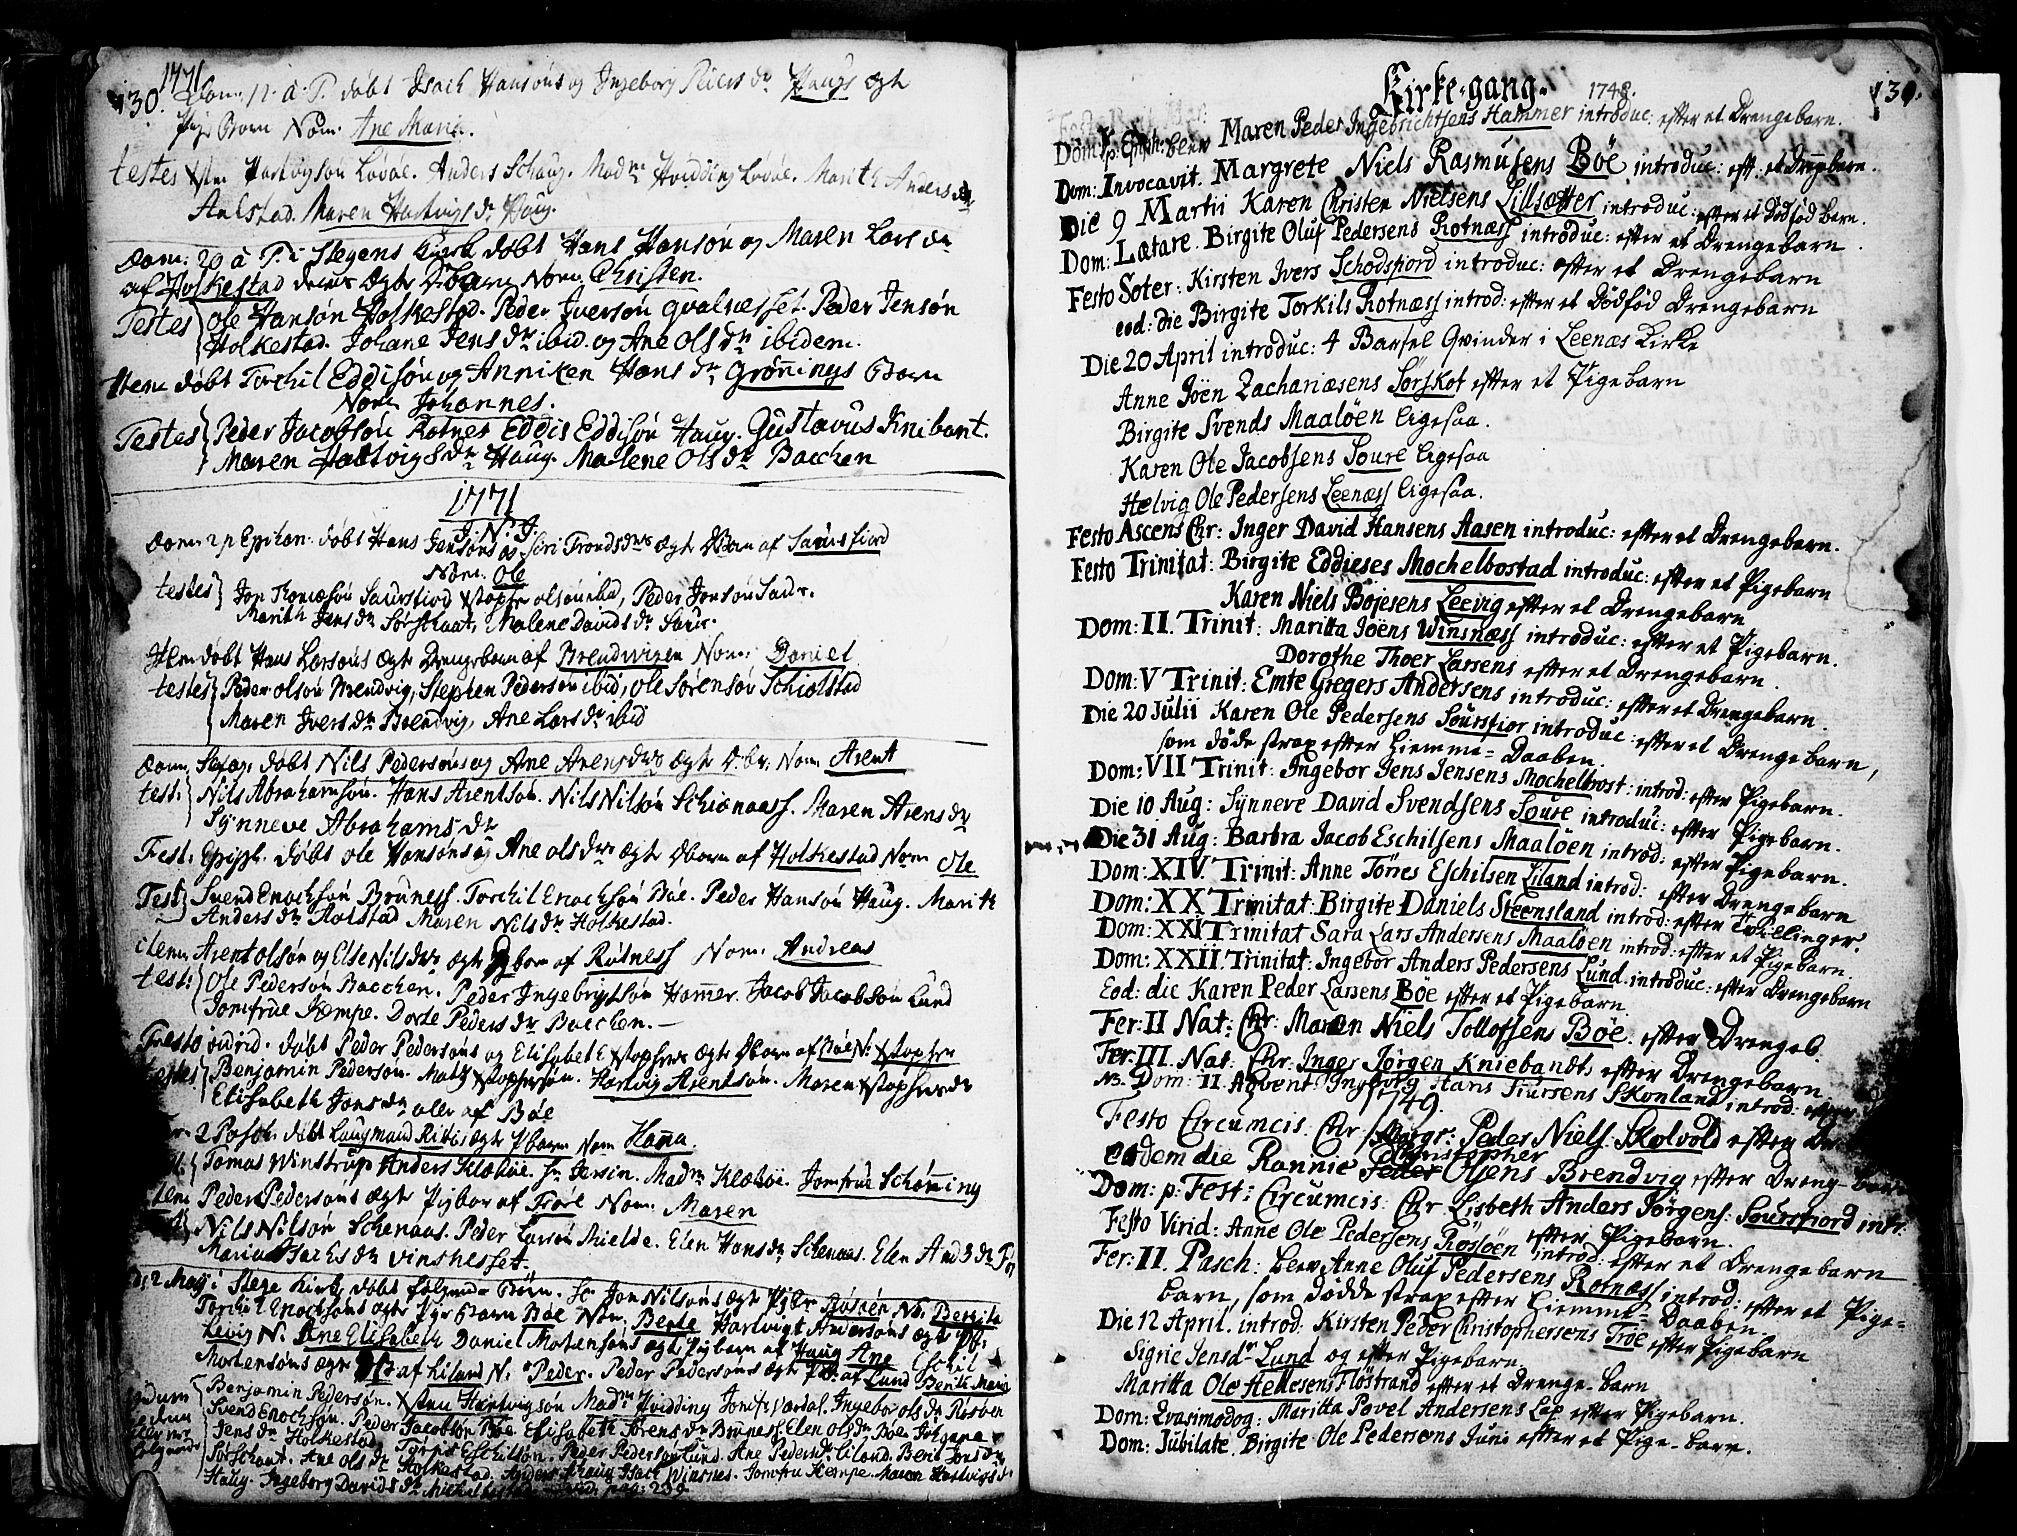 1771
130.
Dom: 11. à P. døbt Isach Hansøns og Ingeborg Peders dr Haugs ægte
Pige Barn Nom. Ane Maria.
testes Xsten Hartvigsøn Løvøe. Anders Schaug. Madme Hvidding Løvøe. Marith Anders dr
Aalstad. Maren Hartvigs dr Haug.
Dom: 20 à P. i Stegens Kirke døbt Hans Hansøn og Maren Lars dr
af Holkestad deres ægte Dbarn Nom. Christen.
Testes Ole Hansøn Holkestad. Peder Iversøn Qvalnæsset. Peder Jensøn
Holkestad. Johane Jens dr ibid. og Ane Ols dr ibidem.
Item døbt Torchil Eddisøn og Anniken Hans dr Grønnings Barn
Nom Johannes.
Testes Peder Jacobsøn Rotnes Eddis Eddisøn Haug. Gustavus Knibant.
Maren Hartvigs dr Haug. Malene Ols dr Bacchen
1771
J. N. J.
Dom 2 p Epihan: døbt Hans Jensøns og Siri Tronds drs ægte DBarn af Saursfiord
Nom. Ole
testes Jon Thomæsøn Saursfiord Xstopher olsøn ibid, Peder Jonsøn Saur.
Marith Jens dr Sørskaat, Malene Davids dr Saur.
Item døbt Hans Larsøns ægte Drengebarn af Brendvigen Nom: Daniel
testes Peder olsøn Brendvig, Stephen Pedersøn ibid, Ole Sørensøn Schiolstad
Maren Ivers dr Brendvig, Ane Lars dr ibid
Dom: Sexag. døbt Nils Pedersøns og Ane Arens drs ægte D.br: Nom Arent
test: Nils Abrahamsøn. Hans Arentsøn. Nils Nilsøn Schionaass. Maren Arens dr
Synneve Abrahams dr
Fest: døbt Ole Hansøns og Ane ols drs ægte Dbarn af Holkestad Nom Ole
Test Svend Enochsøn Bruness. Torchil Enochsøn Bøe. Peder Hansøn Haug. Marith
Anders dr Aalstad Maren Nils dr Holkestad.
item Arent olsøn og Else Nils drs ægte Dbarn af Rotness Nom: Andreas
test: Ole Pedersøn Bacchen. Peder Ingebrigtsøn Hammer. Jacob Jacobsøn Lund
Jomfrue Kempe. Dorte Peders dr Bacchen.
Festo viridi. døbt Peder Pedersøns og Elisabeth Xstophers ægte Dbarn af Bøe N: Xstopher
testes Benjamin Pedersøn. Xstophersøn. Hartvig Arentsøn. Maren Xstophers dr
Elisabeth Jons dr alle af Bøe
2 Pasch: døbt Laugmand Ribers ægte Pbarn Nom Hanna.
Tomas Winstrup Anders Klæboe. Hr Jersin. Madm Klæboe. Jomfrue Schøning
Item Peder Pedersøns ægte Pigbar af Trøe Nom. Maren
Nils Nilsøn Schenaas. Peder Larsøn Mielde. Elen Hans dr Schenaas. Elen And: dr
Maria Isachs dr Vinsnesset.
2 Maij i Stege Kirke døbt følgende Børn. Jon Nilsøns ægte Pibr Røsøen No: Bergita
Torchil Enochsøns ægte Pge Barn Bøe Nom. Berte Hartvigt Andersøns ægte PB:
Levig N: Ane Elisabeth Daniel Mortensøns ægte Pigbarn af Haug Ane Eschil
Mortensøns ægte af Liland N: Peder. Peder Pedersøns ægte PB. af Lund Berith Maria
Benjamin Pedersøn. Xsten Hartvigsøn Madm Hvidding Jomfr Værdal. Ingebor ols dr Røsøen
Svend Enochsøn. Peder Jacobsøn Bøe Elisabeth Sørens dr Brunes Elen ols dr Bøe Johane
Jens dr Holkestad Tørris Eschilsøn. Peder Pedersøn Lund. Ane Peders dr Liland. Berit Jons dr
Sørskaat. Ane ols dr Holkestad. Anders Schaug Isach Winsnes. Jomfru Kempe. Maren Hartvigs dr
Haug. Ingeborg Davids dr pag: 239
Kirke-gang. 1748.
131.
Dom I p. Epiph: Maren Peder Ingebrichtsens Hammer introduc: efter et Drengebarn.
Dom: Invocavit. Margrete Niels Rasmusens Bøe introduc: eft. et Drengebarn.
Die 9 Martii Karen Christen Nielsens Lillsætter introduc: efter et Dødfød barn.
Dom: Lætare. Birgite Oluf Pedersens Rotnæss introduc: efter et Drengebarn.
Festo Soter: Kirsten Ivers Schodsfiord introduc: efter et Drengebarn
eod: die Birgite Torkils Rotnæss introd: efter et Dødfød Drengebarn
Die 20 April introduc: 4 Barsel Qvinder i Leenæs Kirke
Anne Joen Zachariæsens Sørskot efter et Pigebarn
Birgite Svends Maaløen ligesaa.
Karen Ole Jacobsens Soure ligesaa
Helvig Ole Pedersens Leenæss ligesaa.
Festo Ascens Chr: Inger David Hansens Aasen introduc: efter et Drengebarn.
Festo Trinitat: Birgite Eddieses Mochelbostad introduc: efter et Pigebarn
Karen Niels Bojesens Leevig efter et Drengebarn
Dom: II. Trinit: Maritta Joens Winsnæss introduc: efter et Pigebarn.
Dorothe Thoer Larsens efter et Drengebarn.
Dom: V Trinit: Emte Gregers Andersens introduc: efter et Drengebarn.
Die 20 Julii Karen Ole Pedersens Soursfior introduc: efter et Drengebarn,
som døde strax efter Hiemme-Daaben.
Dom: VII Trinit: Ingebor Jens Jensens Mochelbost: introd: efter Pigebarn.
Die 10 Aug: Synneve David Svendsens Soure introduc: efter Pigebarn.
Die 31 Aug: Barbra Jacob Eschilsens Maaløen introd: efter Pigebarn.
Dom: XIV Trinit: Anne Tørres Eschilsen Liland introd: efter Drengebarn
Dom: XX Trinitat: Birgite Daniels Steensland introd: efter Tvillinger.
Dom: XXI Trinitat Sara Lars Andersens Maaløen introd: efter et Pigebarn.
Dom: XXII. Trinitat: Ingebor Anders Pedersens Lund introduc: efter Drengebarn
Eod: die Karen Peder Larsens Boe efter et Pigebarn.
Fer: II Nat: Chr: Maren Niels Tollofsens Bøe. efter Drengeb.
Fer: III. Nat: Chr: Inger Jørgen Kniebandts efter Drengebarn
NB. Dom: II Advent Ingborg Hans Siursens Skonland introd: efter
1749.
Festo Circumcis: Chr: Margr: Peder Niels. Skolvold efter
Christopher
eodem die Rannie Peder Olsens Brendvig efter Dreng-barn
Dom: p: Fest: Circumcis: Chr Lisbeth Anders Jørgens: Soursfiord intr.
efter Pigebarn.
Festo Virid: Anne Ole Pedersens Røssøen introd: efter et Drengebarn
Fer: II. Pasch: Anne Oluf Pedersens Rotnæss introd: efter et Pige-
barn, som dødde strax efter Hiemme-Daaben.
Die 12 April. introd: Kirsten Peder Christophersens Trøe efter Pigebarn
Sigrie Jensdr Lund og efter Pigebarn.
Maritta Ole Hellesens Flostrand efter et Drenge-barn
Dom: Qvasimodog: Maritta Povel Andersens Lap efter Pigebarn.
Dom: Jubilate. Birgite Ole Pedersens Juni efter et Pige-barn.